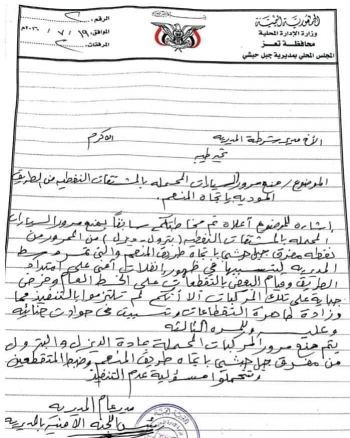 الجمهورية اليمنية
وزارة الإدارة المحلية
محافظة تعز
المجلس المحلي بمديرية جبل حبشي
الرقم:
الموافق: ١٩ / ٧ /
المرفقات:
الأخ مدير شرطة المديرية الاكرم
تحية طيبه
الموضوع/ منع مرور السيارات المحمله بالمشتقات النفطيه من الطريق
باتجاه المنعم.
اشاره للموضوع أعلاه تم مخاطبتكم سابقاً بمنع مرور السيارات
المحمله بالمشتقات النفطيه (بترول - ديزل) من المرور من
نقطة مفرق جبل حبشي باتجاه طريق المنعم والتي تمر وسط
المديرية لتسببها في ظهور انفلات أمني على امتداد
الطريق وقيام البعض بالتقطعات على الخط العام وفرض
جباية على تلك المركبات الا أنكم لم تلتزموا بالتنفيذ مما
وزادة ظاهرة التقطاعات وتسببت في حوادث جنائية
وعليه وللمره الثالثه
يتم منع مرور المركبات المحملة بمادة الديزل والبترول
من مفرق جبل حبشي باتجاه طريق المنعم وضبط المتقطعين
وتتحملوا مسؤولية عدم التنفيذ
مدير عام المديريه
رئيس اللجنه الامنية بالمديرية